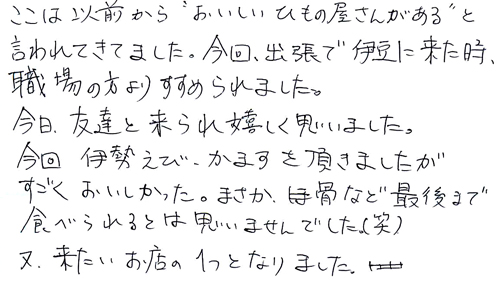 ここは以前から“おいしいひもの屋さんがある”と
言われてきてました。今回、出張で伊豆に来た時、
職場の方よりすすめられました。
今日、友達と来られ嬉しく思いました。
今回 伊勢えび、かますを頂きましたが
すごくおいしかった。まさか、ほ骨など最後まで
食べられるとは思いませんでした(笑)
又、来たいお店の1つとなりました。